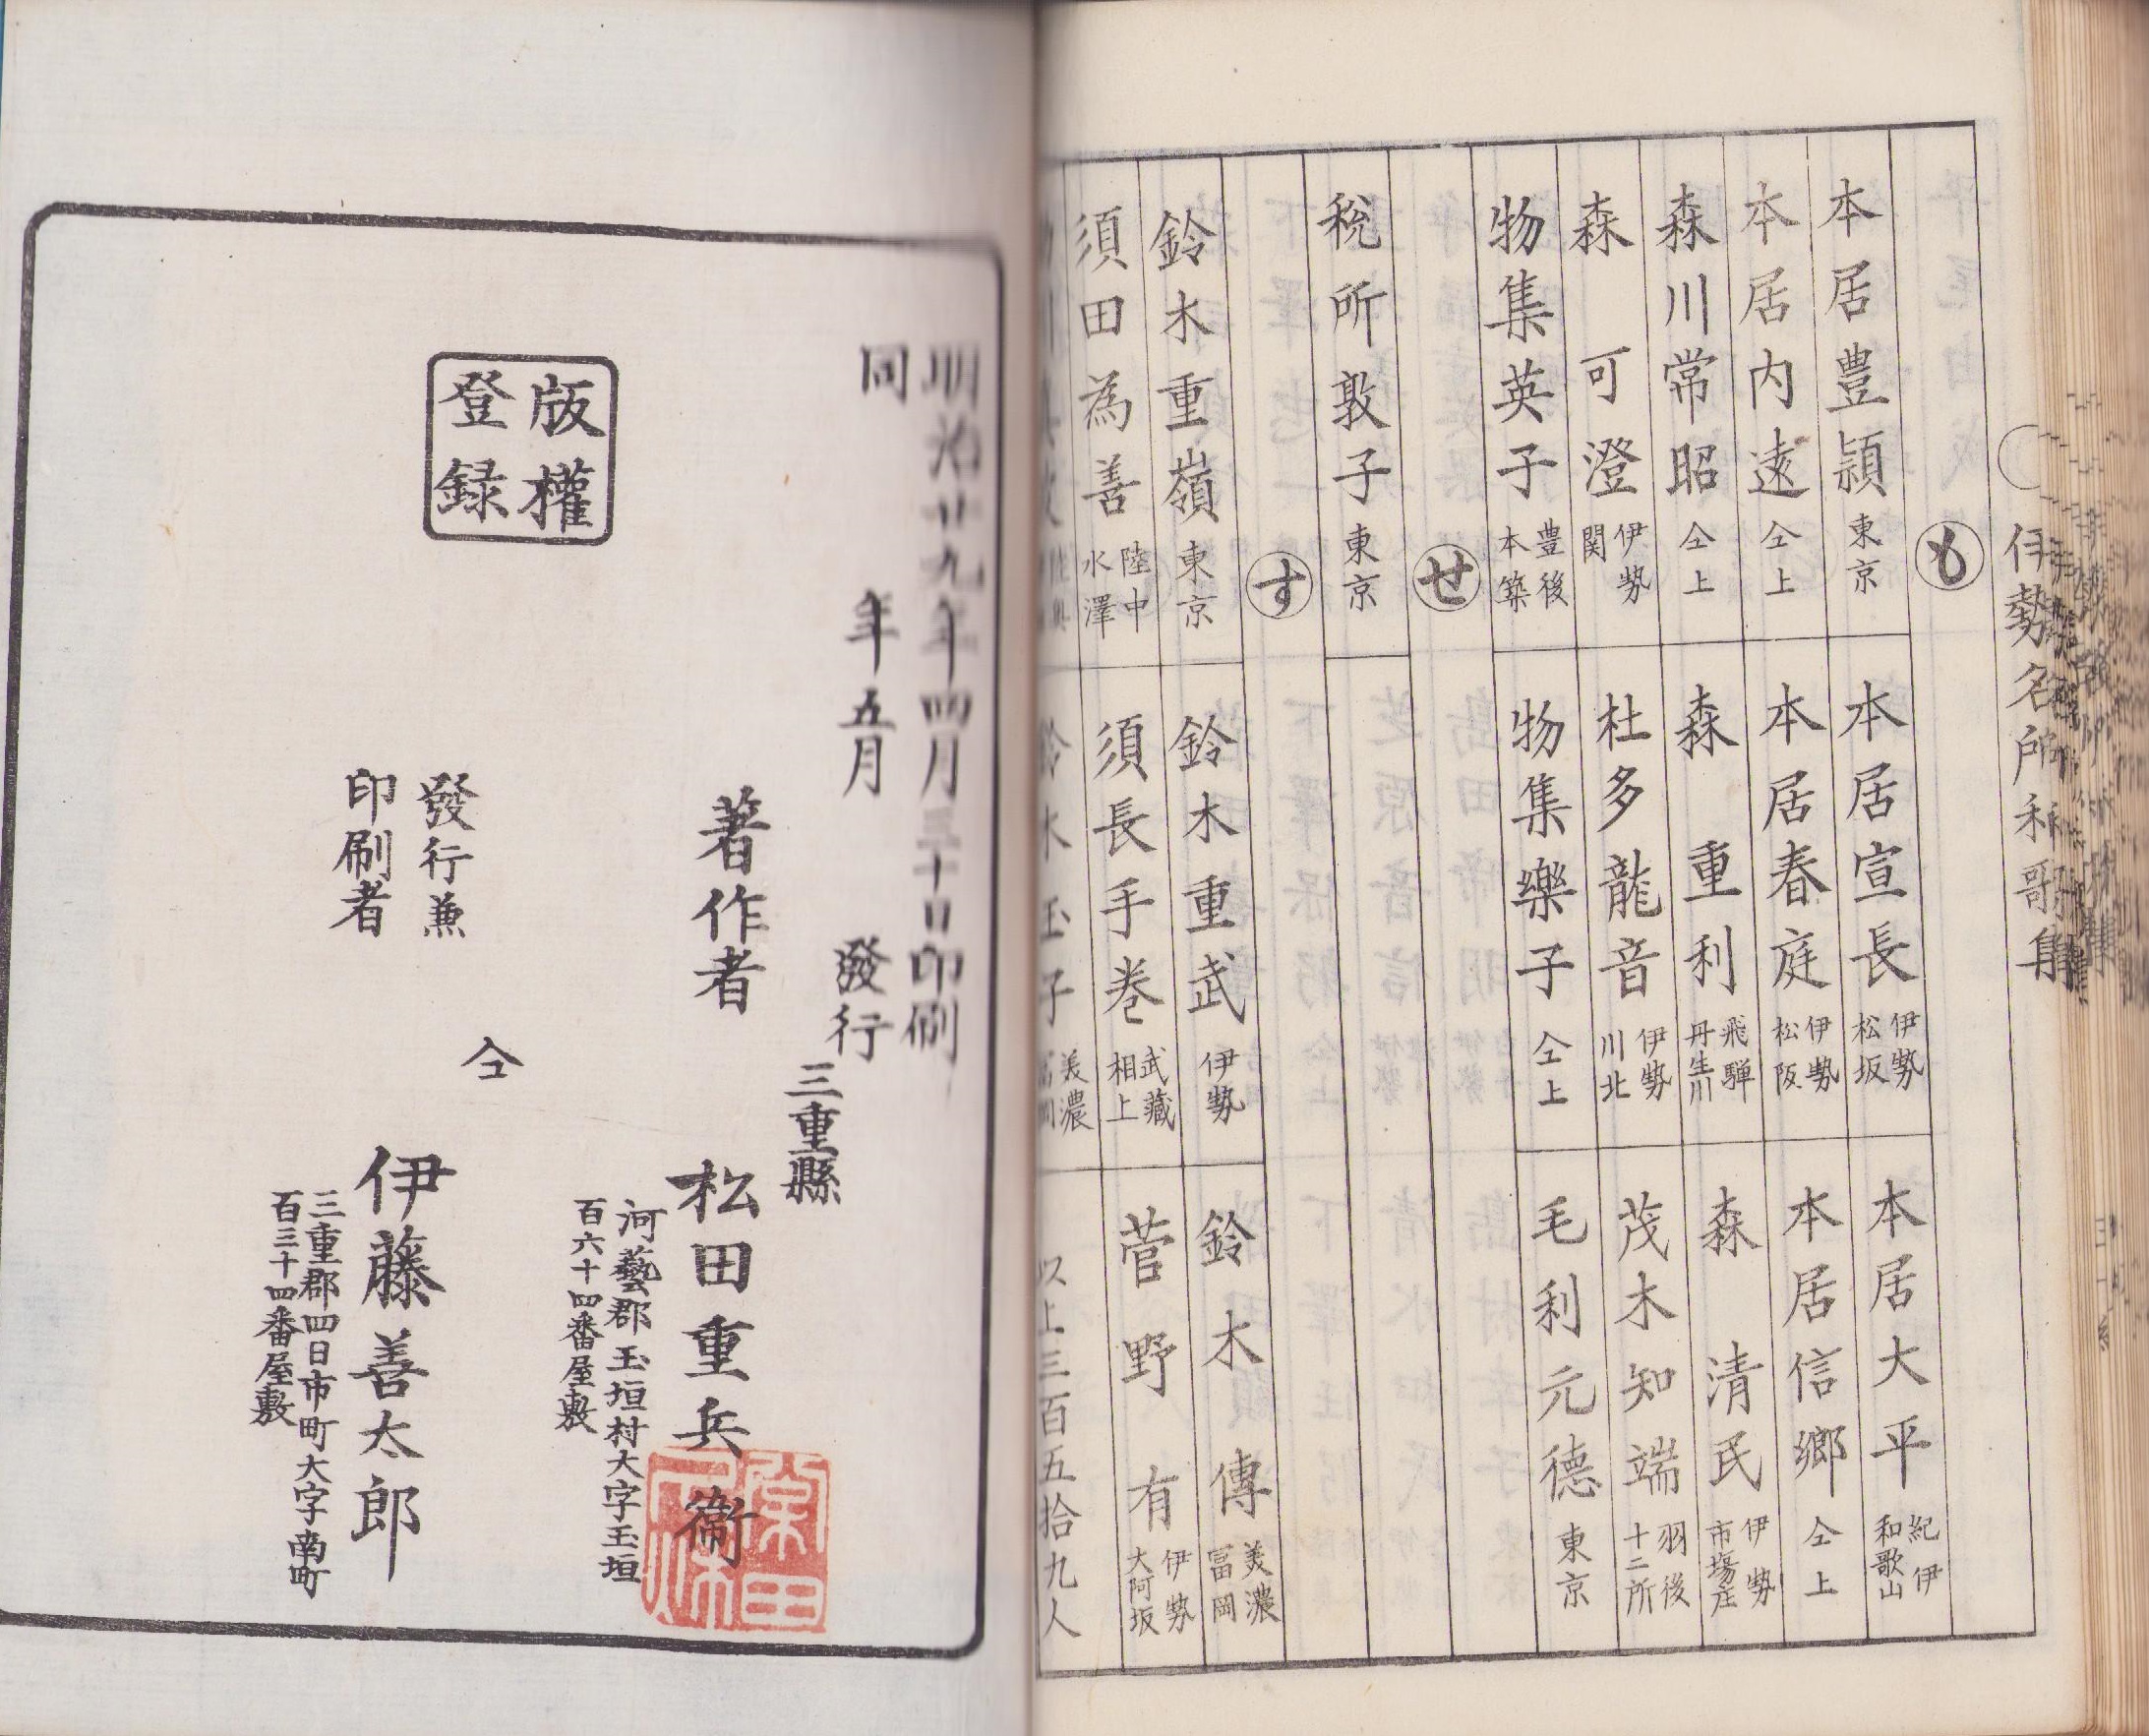 伊勢名所和歌集
も
本居豊頴 東京
本居宣長 伊勢松坂
本居大平 紀伊和歌山
本居内遠 仝上
本居春庭 伊勢松阪
本居信郷 仝上
森川常昭 仝上
森重利 飛騨丹生川
森清民 伊勢市塲庄
森可澄 伊勢関
杜多龍音 伊勢川北
茂木知端 羽後十二所
物集英子 豊後本築
物集樂子 仝上
毛利元德 東京
せ
税所敦子 東京
す
鈴木重嶺 東京
鈴木重武 伊勢
鈴木傳 美濃冨岡
須田為善 陸中水澤
須長手巻 武藏相上
菅野有 伊勢大阿坂
鈴木玉子 美濃
以上三百五拾九人
明治廿九年四月三十日印刷
同年五月 發行
三重縣
著作者 松田重兵衞
河藝郡玉垣村大字玉垣
百六十四番屋敷
版權
登録
仝
發行兼
印刷者
伊藤善太郎
三重郡四日市町大字南町
百三十四番屋敷